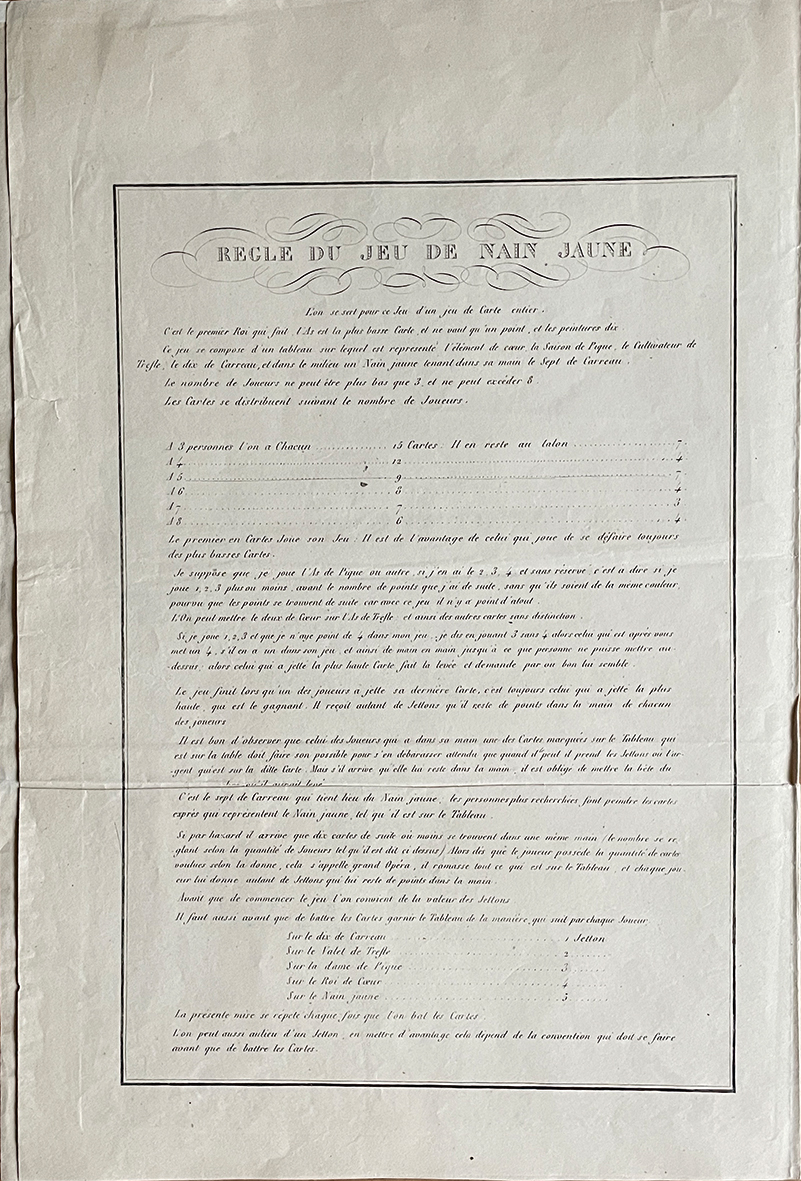 REGLE DU JEU DE NAIN JAUNE
L'on se sert pour ce Jeu d'un jeu de Carte entier.
C'est le premier Roi qui fait, l'As est la plus basse Carte, et ne vaut qu'un point, et les peintures dix.
Ce jeu se compose d'un tableau sur lequel est représenté l'élément de cœur, la Saison de Pique, le Cultivateur de
Trefle, le dix de Carreau, et dans le milieu un Nain jaune tenant dans sa main le Sept de Carreau.
Le nombre de Joueurs ne peut être plus bas que 3, et ne peut excéder 8.
Les Cartes se distribuent suivant le nombre de Joueurs.
A 3 personnes l'on a Chacun ............ 15 Cartes. Il en reste au talon ............ 7
A 4 ............ 12 ............ 4
A 5 ............ 9 ............ 7
A 6 ............ 8 ............ 4
A 7 ............ 7 ............ 3
A 8 ............ 6 ............ 4
Le premier en Cartes Joue son Jeu. Il est de l'avantage de celui qui joue de se défaire toujours
des plus basses Cartes.
Je suppôse que je joue l'As de Pique ou autre, si j'en ai le 2, 3, 4, et sans réserve c'est a dire si je
joue 1, 2, 3 plus ou moins, avant le nombre de points que j'ai de suite, sans qu'ils soient de la même couleur,
pourvu que les points se trouvent de suite car avec ce jeu il n'y a point d'atout.
L'On peut mettre le deux de Cœur sur l'As de Trefle, et ainsi des autres cartes sans distinction.
Si je joue 1, 2, 3 et que je n'aye point de 4 dans mon jeu, je dis en jouant 3 sans 4 alors celui qui est après vous
met un 4, s'il en a un dans son jeu, et ainsi de main en main, jusqu'à ce que personne ne puisse mettre au-
-dessus; alors celui qui a jetté la plus haute Carte fait la levée et demande par ou bon lui semble.
Le jeu finit lors qu'un des joueurs à jetté sa dernière Carte, c'est toujours celui qui a jetté la plus
haute, qui est le gagnant. Il reçoit autant de Jettons qu'il reste de points dans la main de chacun
des joueurs
Il est bon d'observer que celui des Joueurs qui a dans sa main une des Cartes marquées sur le Tableau qui
est sur la table doit faire son possible pour s'en débarasser attendu que quand il peut il prend les Jettons ou l'ar-
-gent qui est sur la ditte Carte. Mais s'il arrive qu'elle lui reste dans la main, il est obligé de mettre la bête du
C'est le sept de Carreau qui tient lieu du Nain jaune, les personnes plus recherchées font peindre les cartes
exprès qui représentent le Nain jaune, tel qu'il est sur le Tableau.
Si par hazard il arrive que dix cartes de suite où moins se trouvent dans une même main (le nombre se re-
glant selon la quantité de Joueurs tel qu'il est dit ci dessus) Alors dès que le joueur possède la quantité de cartes
voulues selon la donne, cela s'appelle grand Opéra, il ramasse tout ce qui est sur le Tableau, et chaque jou-
eur lui donne autant de Jettons qui lui reste de points dans la main.
Avant que de commencer le jeu l'on convient de la valeur des Jettons
Il faut aussi avant que de battre les Cartes garnir le Tableau de la manière qui suit par chaque Joueur.
Sur le dix de Carreau ............ 1 Jetton
Sur le Valet de Trefle ............ 2 ......
Sur la dame de Pique ............ 3 ......
Sur le Roi de Cœur ............ 4 ......
Sur le Nain jaune ............ 5 ......
La présente mise se répète chaque fois que l'on bat les Cartes.
L'on peut aussi aulieu d'un Jetton, en mettre d'avantage cela dépend de la convention qui doit se faire
avant que de battre les Cartes.